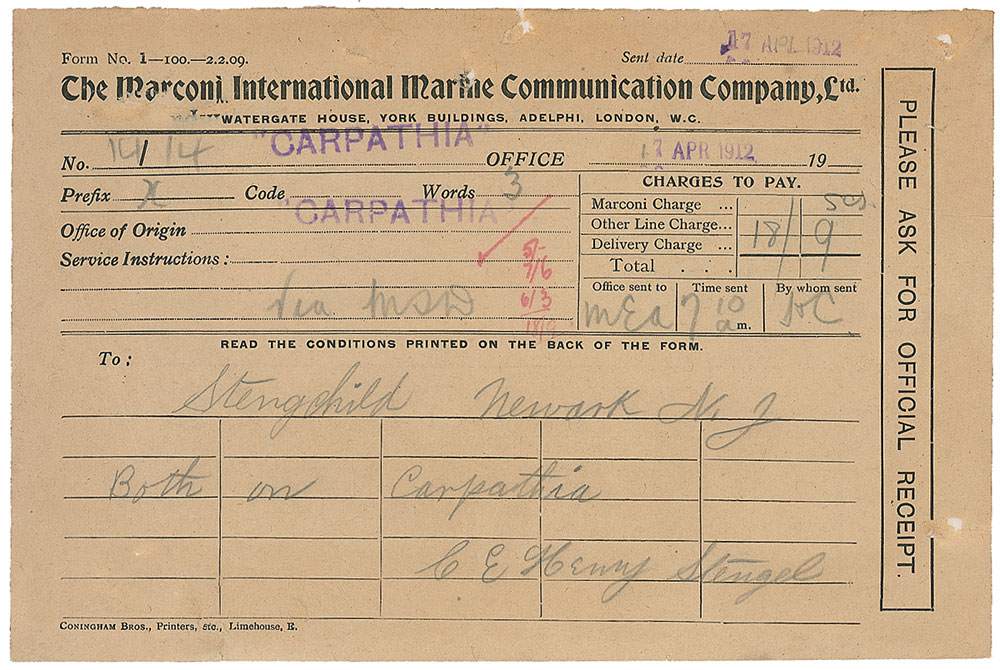 Form No. 1—100.—2.2.09. Sent date 17 APR 1912
The Marconi International Marine Communication Company, Ltd.
WATERGATE HOUSE, YORK BUILDINGS, ADELPHI, LONDON, W.C.
No. 14 "CARPATHIA" OFFICE 17 APR 1912 19
Prefix X Code Words 3
"CARPATHIA"
Office of Origin
Service Instructions:
5/-
7/6
6/3
18/9
via MSD
CHARGES TO PAY.
Marconi Charge ...
Other Line Charge...
Delivery Charge ...
Total . . . 18/9
Office sent to Time sent By whom sent
MEA 7 10 a m.
READ THE CONDITIONS PRINTED ON THE BACK OF THE FORM.
To:
Stengchild Newark N. J
Both on Carpathia
C E Henry Stengel
CONINGHAM BROS., Printers, etc., Limehouse, E.
PLEASE ASK FOR OFFICIAL RECEIPT.